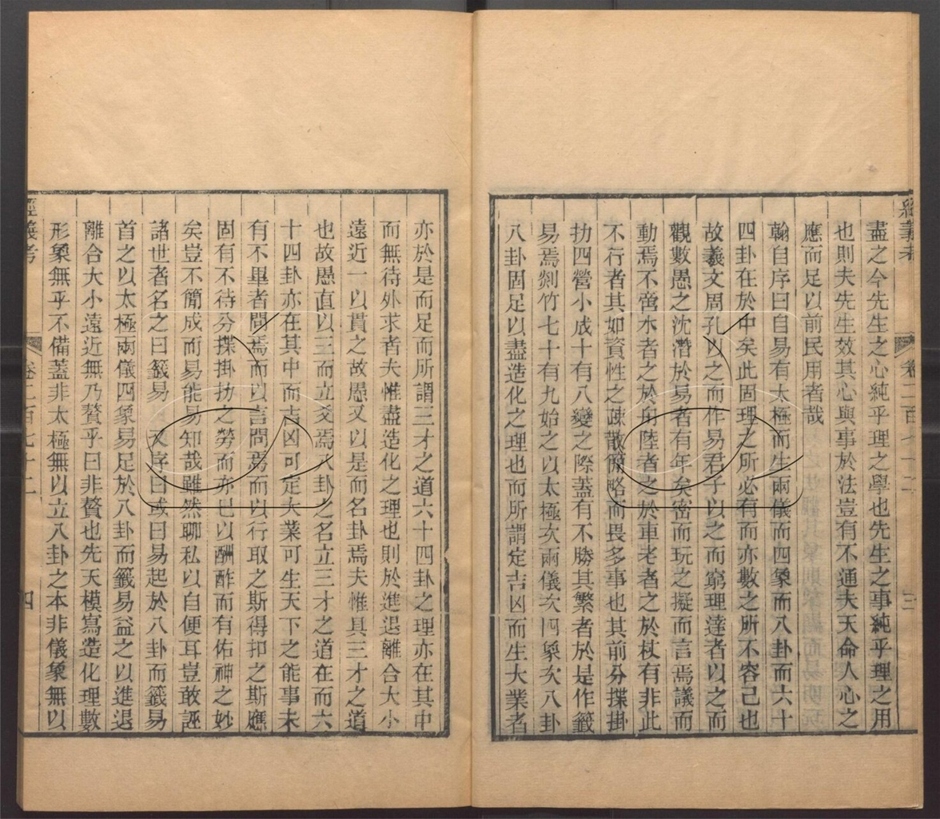 經義考 卷二百七十二 三
盡之今先生之心純乎理之學也先生之事純乎理之用
也則夫先生效其心與事於法豈有不通夫天命人心之
應而足以前民用者哉
翰自序曰自易有太極而生兩儀而四象而八卦而六十
四卦在於中矣此固理之所必有而亦數之所不容己也
故羲文周孔以之而作易君子以之而窮理達者以之而
觀數愚之沈潛於易者有年矣密而玩之擬而言焉議而
動焉不啻水者之於舟陸者之於車老者之於杖有非此
不行者其如資性之疎散簡略而畏多事也其前分揲掛
扐四營小成十有八變之際蓋有不勝其繁者於是作籤
易焉剡竹七十有九始之以太極次兩儀次四象次八卦
八卦固足以盡造化之理也而所謂定吉凶而生大業者
亦於是而足而所謂三才之道六十四卦之理亦在其中
而無待外求者夫惟盡造化之理也則於進退離合大小
遠近一以貫之故愚又以是而名卦焉夫惟具三才之道
也故愚直以三而立爻焉八卦之名立三才之道在而六
十四卦亦在其中而吉凶可定大業可生天下之能事未
有不畢者問焉而以言問焉而以行取之斯得扣之斯應
固有不待分揲掛扐之勞而亦已以酬酢而有佑神之妙
矣豈不簡成而易能易知哉雖然聊私以自便耳豈敢誣
諸世者名之曰籤易 又序曰或曰易起於八卦而籤易
首之以太極兩儀四象易足於八卦而籤易益之以進退
離合大小遠近無乃贅乎曰非贅也先天模寫造化理數
形象無乎不備蓋非太極無以立八卦之本非儀象無以
經義考 卷二百七十二 四